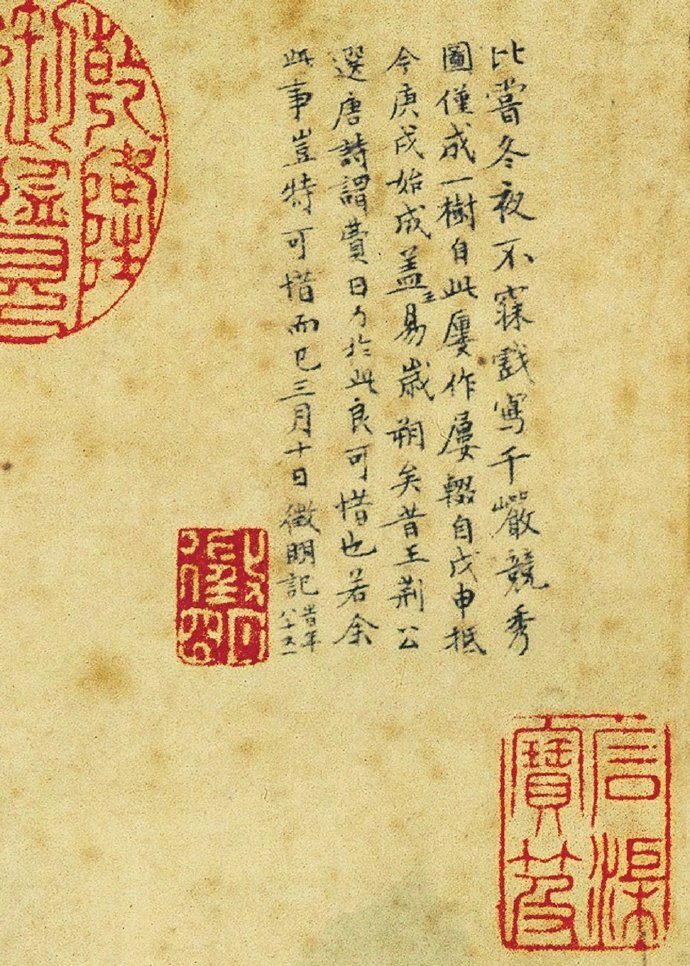 比嘗冬夜不寐戲寫千巖競秀
圖僅成一樹自此屢作屢輟自戊申抵
今庚戌始成蓋三易歲朔矣昔王荆公
選唐詩謂費日力於此良可惜也若余
此事豈特可惜而已三月十日徵明記時年
八十又一
乾隆
御覽
徵明
信渠
寶笈